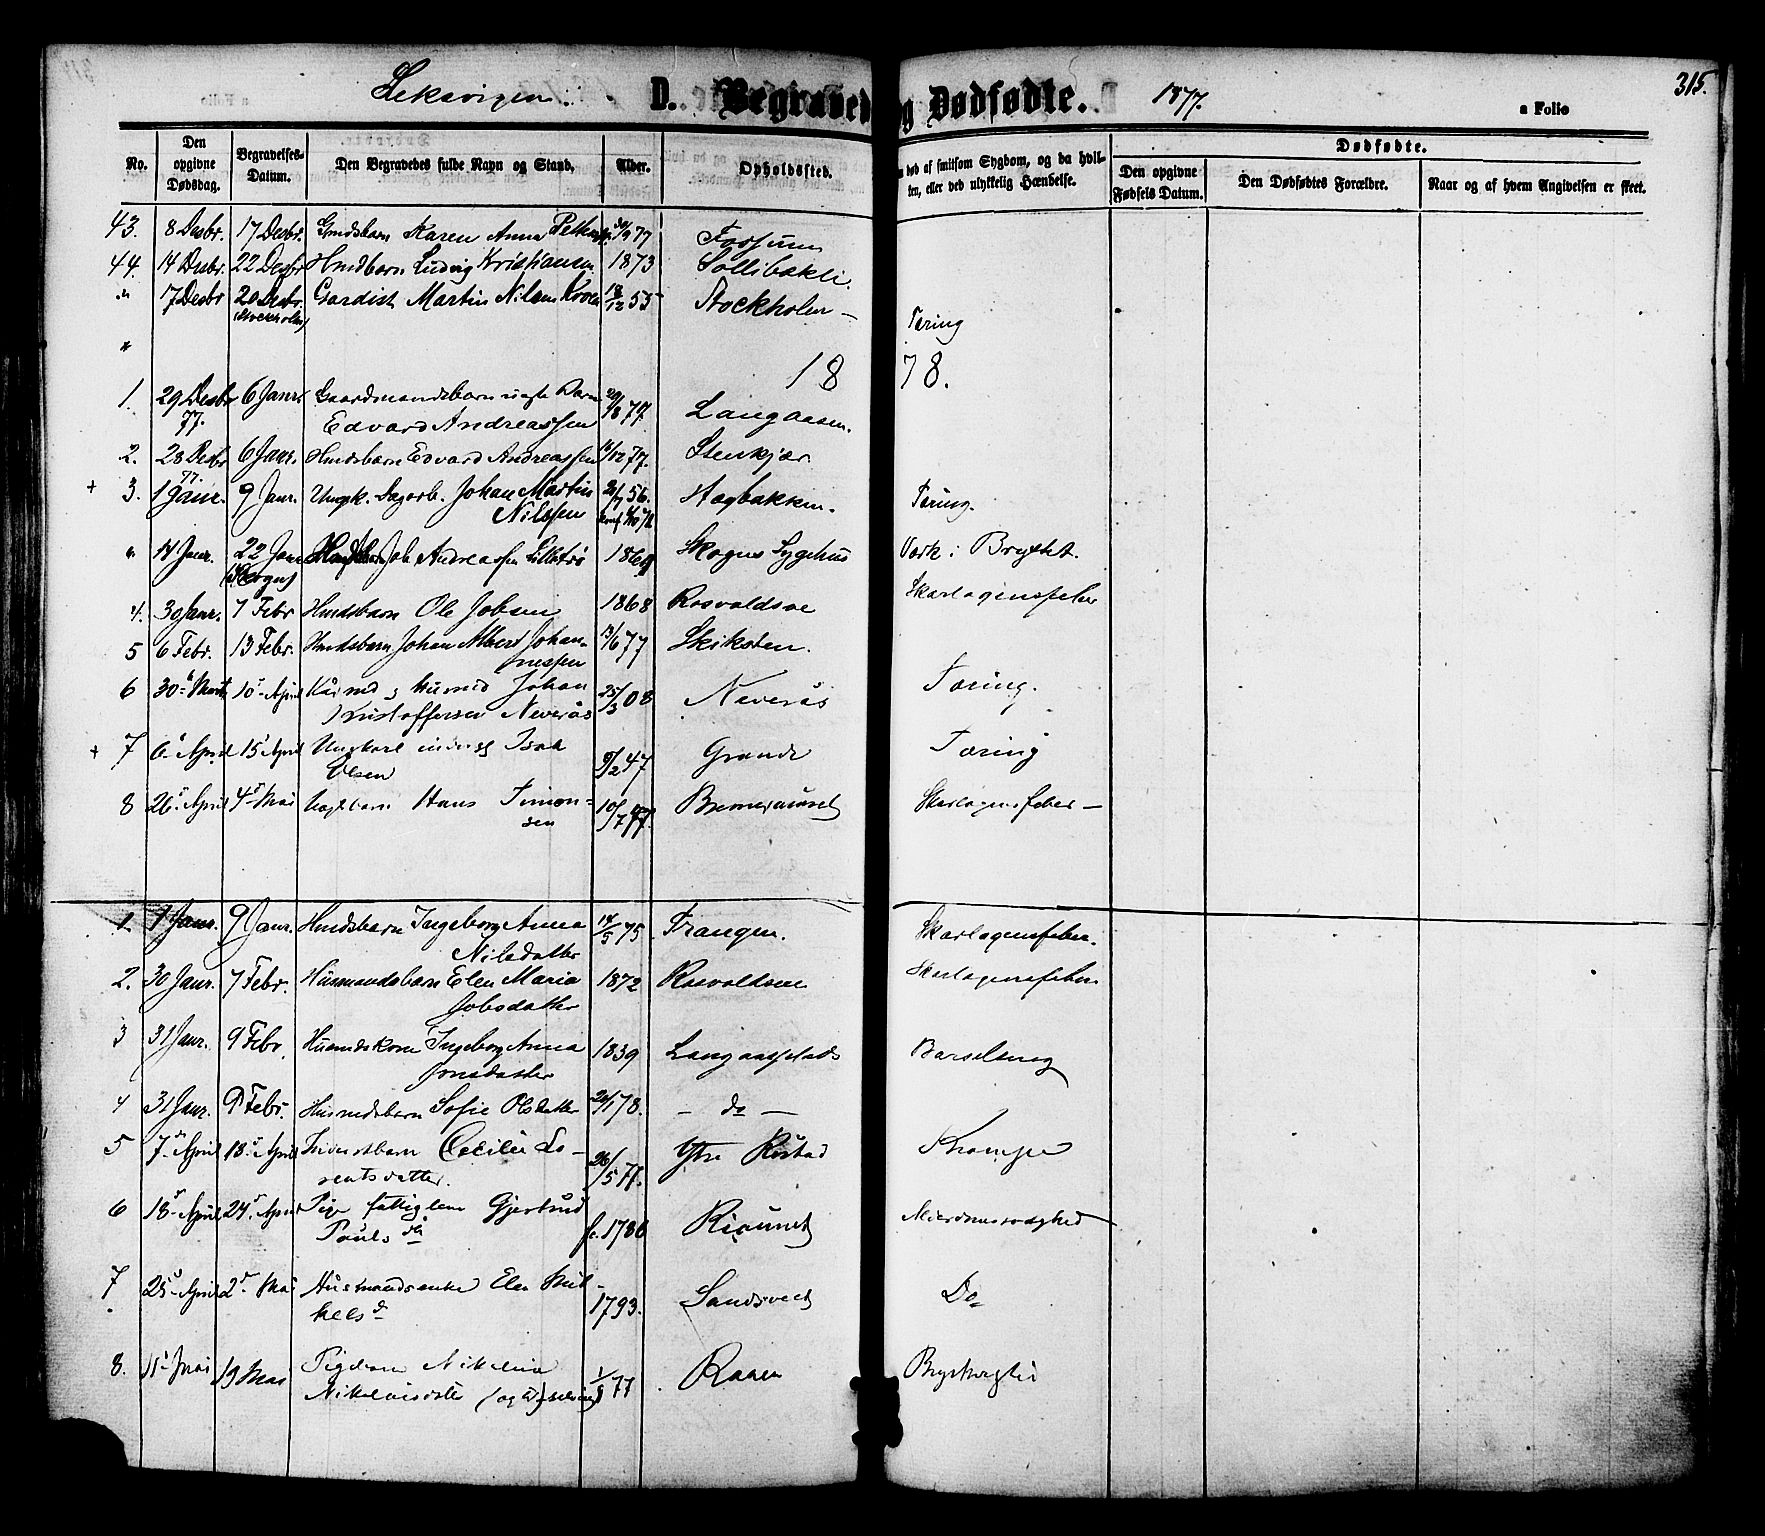 Leksvigen. D. Begravede og Dødfødte. 1877. a Folio 315.
No. Den opgivne Dødsdag. Begravelses-Datum. Den Begravedes fulde Navn og Stand. Alder. Opholdssted. død af smitsom Sygdom, og da hvilken, eller ved ulykkelig Hændelse. Dødfødte. Den opgivne Fødsels Datum. Den Dødfødtes Forældre. Naar og af hvem Angivelsen er skeet.
43. 8 Desbr. 17 Desbr. Gmdsbarn Karen Anna 77 Fossum
44. 14 Desbr. 22 Desbr Hmdbarn Ludvig Kristiansen 1873 Sollibakli.
" 17 Desbr 20 Desbr. (Stockholm) Gardist Martin Nilsen 18/12 55 Stockholm – Tæring
1878.
1. 29 Desbr 77. 6 Janr. Gaardmandsbarn uægte Barn
Edvard Andreassen 29/8 77. Langaasen.
2. 28 Desbr 77. 6 Janr. Hmdsbarn Edvard Andreassen /12 77. Stenkjær
+ 3. 1 Janr. 9 Janr. Ungk. Dagarb. Johan Martin
Nilssen 56. Hagbakken. Tæring.
" 14 Janr. 22 Janr (Skogn) Job Andreassen Lilletrø 1869 Skogns Sygehus Værk i Brystet.
4. 30 Janr. 7 Febr Hmdsbarn Ole Jobsen 1868 Rosvoldsve Skarlagensfeber
5 6 Febr. 13 Febr. Hmdsbarn Johan Albert Johan-
nessen 13/6 77 Skiksten.
6 30 Marts 10 April Kårmd. Husmd Johan
Kristoffersen Neverås 25/3 08 Neverås Tæring.
+ 7 6 April 15 April Ungkarl inderst Isak
Olsen 9/2 47 Grande Tæring
8 26 April 4 Mai Uægtebarn Hans Simon-
sen 10/7 77. Skarlagensfeber –
1. 1 Janr. 9 Janr. Hmdsbarn Ingeborg Anna
Nilsdatter 14/5 75 Trangen. Skarlagensfeber.
2. 30 Janr. 7 Febr. Husmandsbarn Elen Maria
Jobsdatter 1872 Rosvoldsve Skarlagensfeber
3 31 Janr. 9 Febr. Husmdskone Ingeborg Anna
Jonsdatter 1839 Langaasplads Barselseng
4 31 Janr. 9 Febr. Husmdsbarn Sofie Olsdatter /1 78. – do –
5 7 April 13 April Inderstbarn Cecilie Lo-
rentsdatter. 26/5 77. Ytre Rustad Krampe
6 18 April 24 April Pige fattiglem Gjertrud
Pouls dtr f. 1786 Risundet Alderdomssvaghed
7 25 April 2 Mai Husmandsenke Elen Mik-
kels d 1793. Sandsvedt Do
8. 11 Mai 19 Mai Pigebarn Nikoline
Nikolaisdtr 1/9 77 Raaen